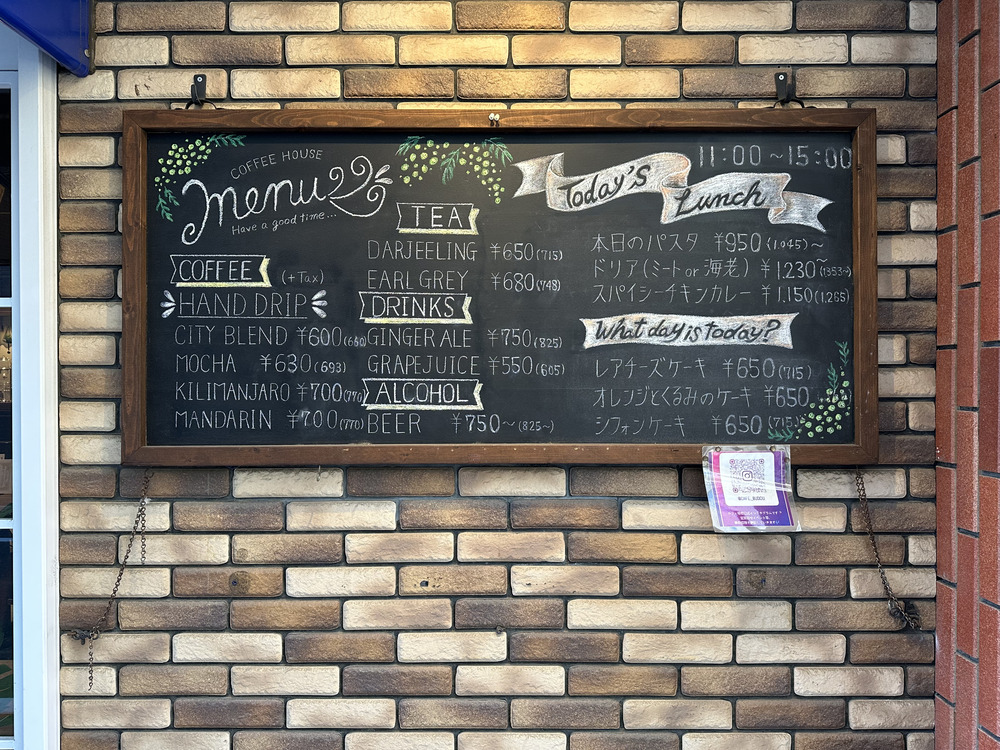 COFFEE HOUSE
menu
Have a good time...
COFFEE (+Tax)
HAND DRIP
CITY BLEND ¥600(660)
MOCHA ¥630(693)
KILIMANJARO ¥700(770)
MANDARIN ¥700(770)
TEA
DARJEELING ¥650(715)
EARL GREY ¥680(748)
DRINKS
GINGER ALE ¥750(825)
GRAPEJUICE ¥550(605)
ALCOHOL
BEER ¥750~(825~)
11:00~15:00
Today's Lunch
本日のパスタ ¥950(1,045)~
ドリア(ミートor海老) ¥1,230~(1353~)
スパイシーチキンカレー ¥1,150(1,265)
What day is today?
レアチーズケーキ ¥650(715)
オレンジとくるみのケーキ ¥650
シフォンケーキ ¥650(715)